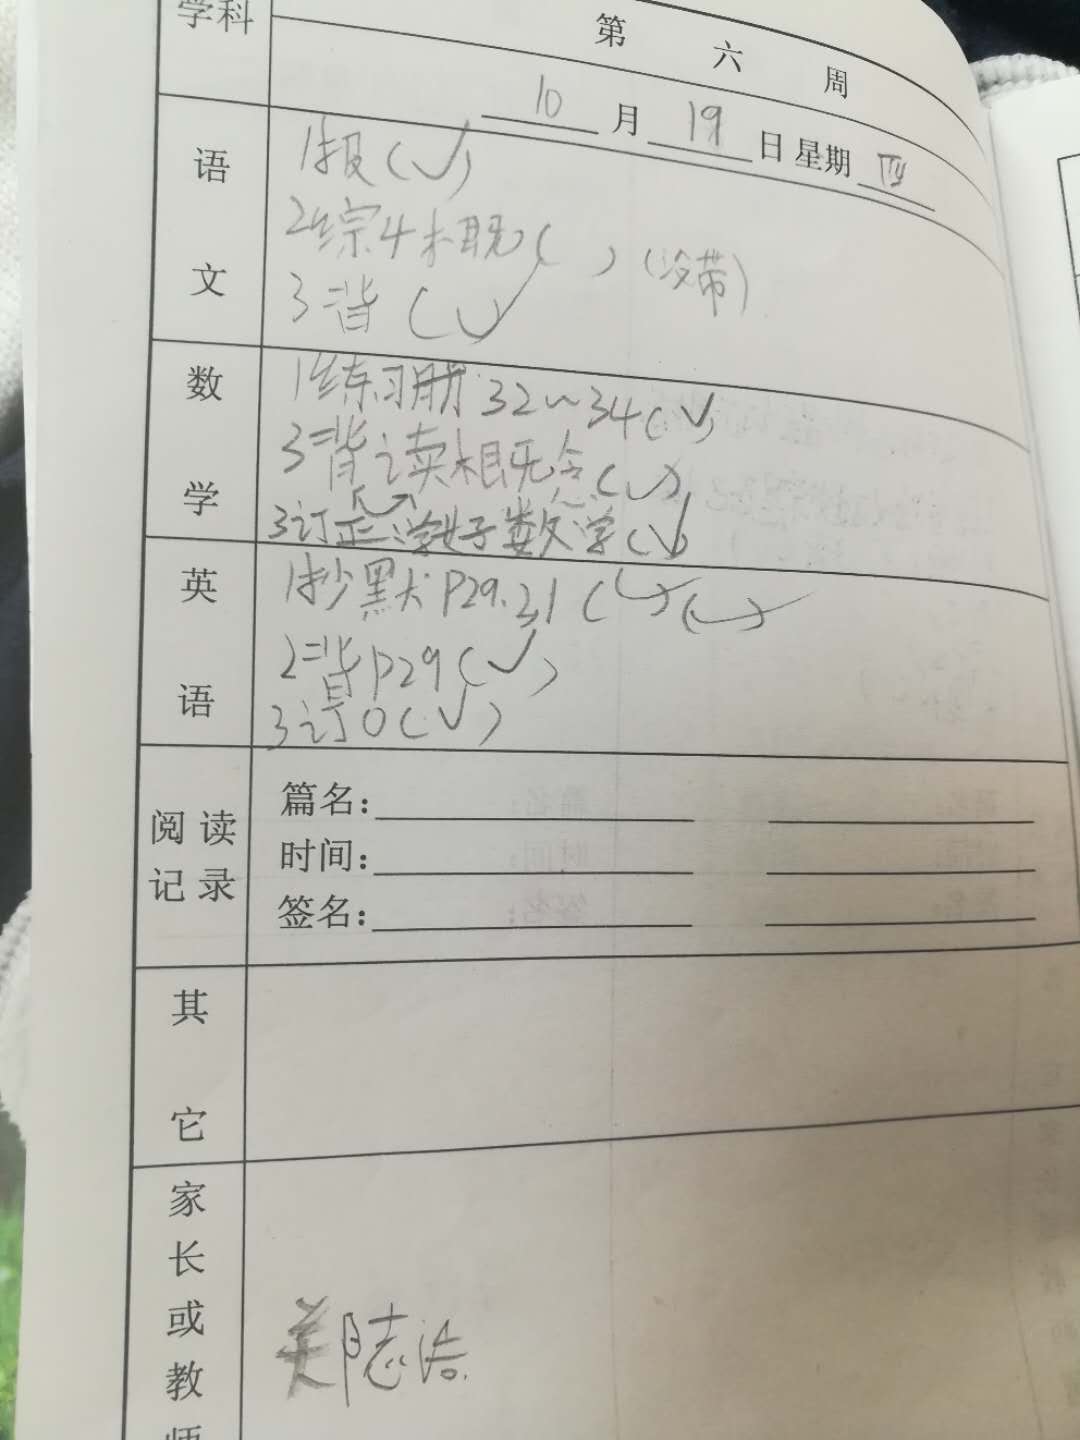 学科
第六周
10月19日星期四
语文
1报(✓)
2综4 ( ) (没带)
3背(✓)
数学
1练习册32~34(✓)
3背读概念(✓)
3订正学好数学(✓)
英语
1抄默P29.31(✓)(✓)
2背P29(✓)
3订0(✓)
阅读记录
篇名:
时间:
签名:
其它
家长或教师
郑志浩